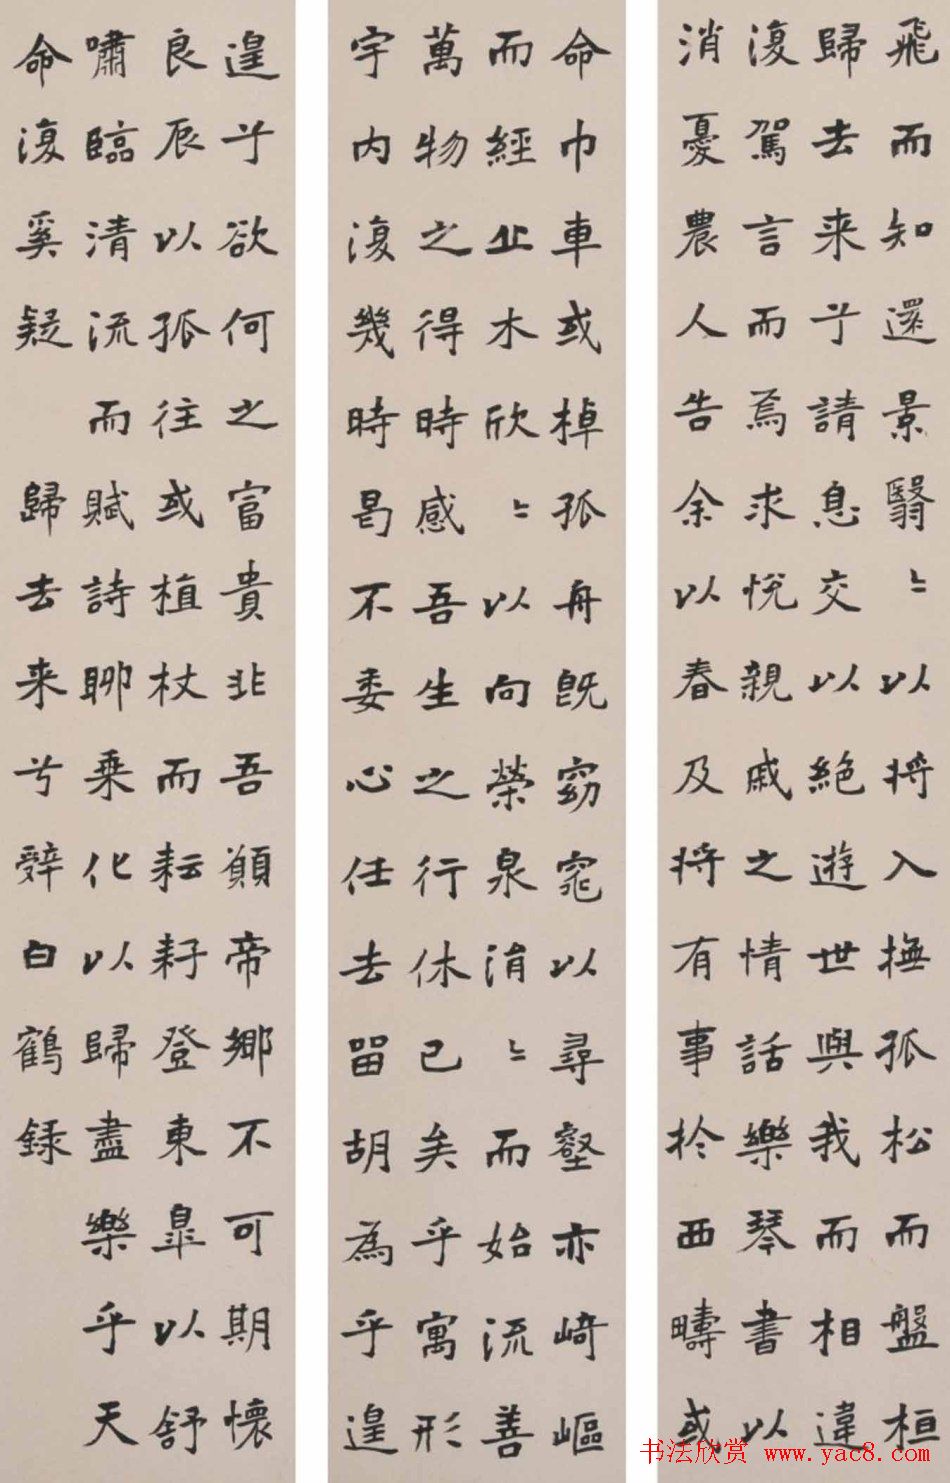 飛而知還景翳〻以将入撫孤松而盤桓
歸去来兮請息交以絶遊世與我而相違
復駕言而焉求悅親戚之情話樂琴書以
消憂農人告余以春及将有事於西疇或
命巾車或棹孤舟既窈窕以尋壑亦崎嶇
而經丘木欣〻以向榮泉涓〻而始流善
萬物之得時感吾生之行休已矣乎寓形
宇内復幾時曷不委心任去留胡為乎遑
遑兮欲何之富貴非吾願帝鄉不可期懷
良辰以孤往或植杖而耘耔登東皐以舒
嘯臨清流而賦詩聊乘化以歸盡樂乎天
命復奚疑 歸去来兮辭白鶴録
书法欣赏 www.yac8.com